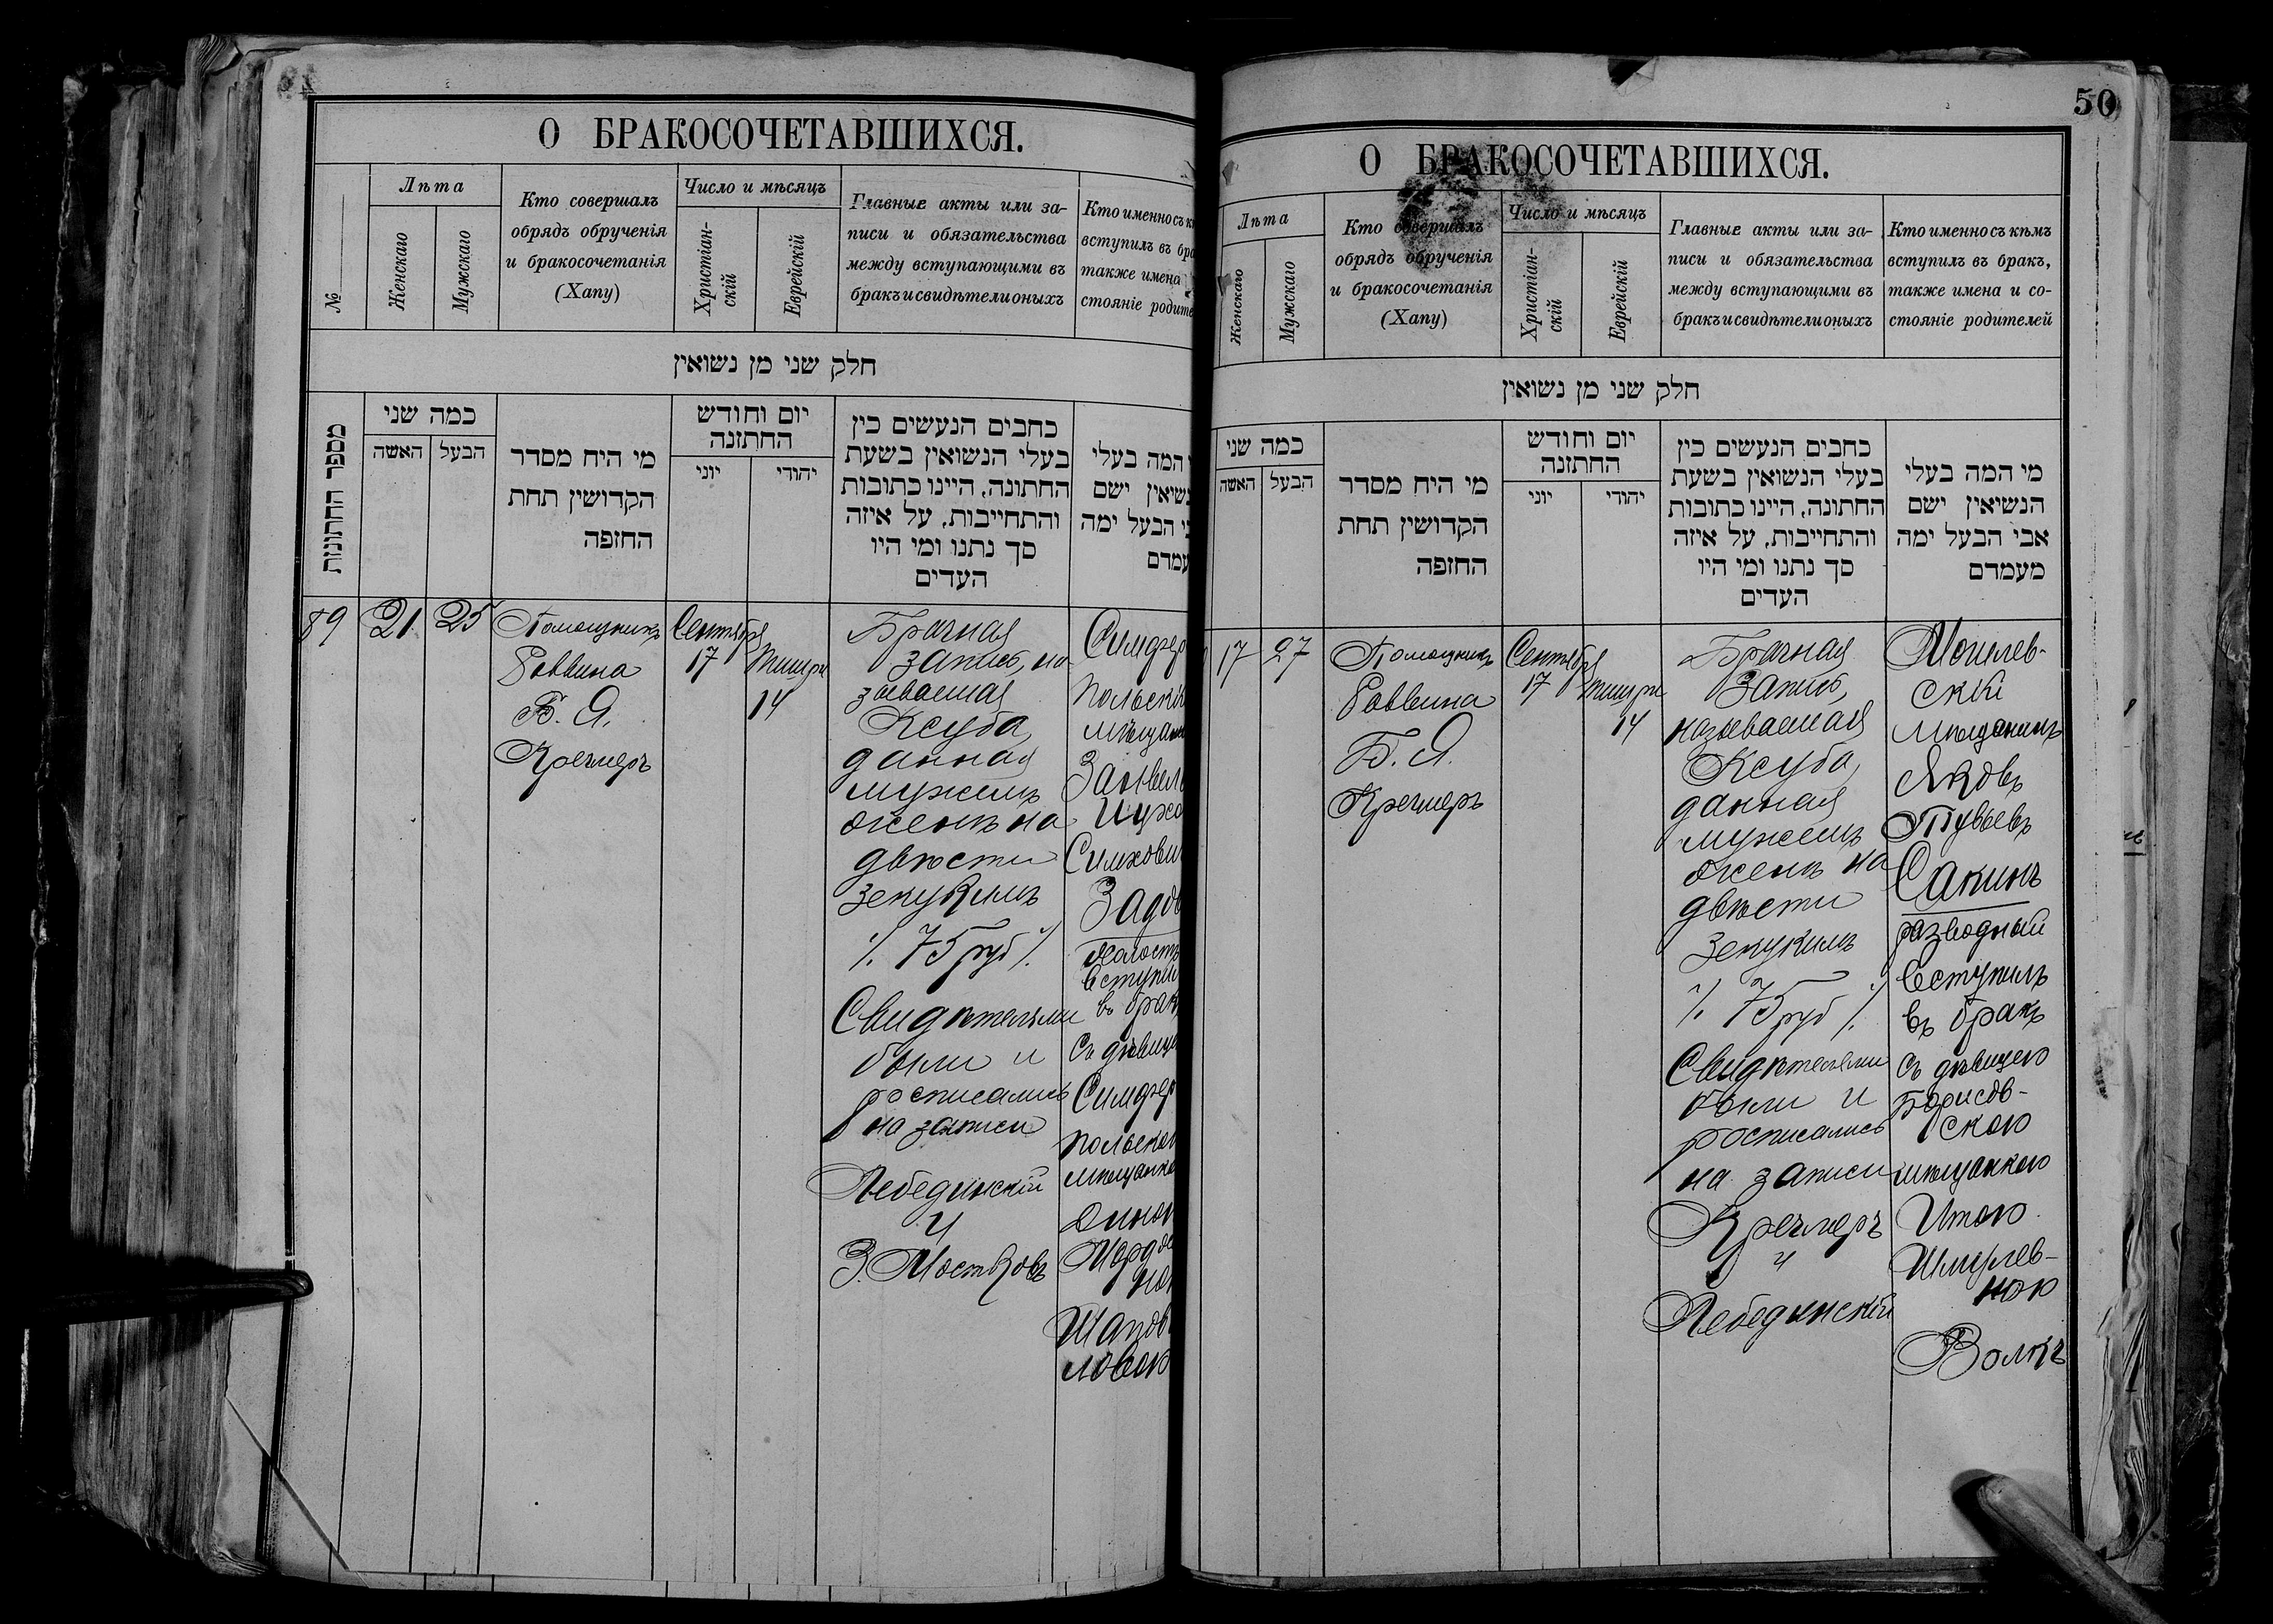 О БРАКОСОЧЕТАВШИХСЯ.
№
Лѣта
Женскаго
Мужскаго
Кто совершалъ
обрядъ обрученія
и бракосочетанія
(Хапу)
Число и мѣсяцъ
Христіан-
скій
Еврейскій
Главные акты или за-
писи и обязательства
между вступающими въ
бракъ и свидѣтели оныхъ
Кто именно съ к
вступилъ въ бра
также имена
стояніе родите
חלק שני מן נשואין
מספר החתונות
כמה שני
האשה
הבעל
מי היח מסדר
הקדושין תחת
החזפה
יום וחודש
החתזנה
יוני
יהודי
כחבים הנעשים כין
בעלי הנשואין בשעת
החתונה, היינו כתובות
והתחייבות, על איזה
סך נתנו ומי היו
העדים
המה בעלי
נשיאין ישם
בי הבעל ימה
עמדם
89
21
25
Помощникъ
Раввина
Б. Я.
Кречмеръ
Сентября
17
Тишри
14
Брачная
запись, на
зываемая
Ксуба,
данная
мужемъ
женѣ на
двѣсти
зекукимъ
./. 75 руб ./.
Свидѣтелями
были и
росписались
на записи
Лебединскій
и
З. Мостковъ
Симфер
польскій
мѣщан
Занвел
Ицхо
Симхови
Задов
холостъ
вступил
въ брак
съ дѣвице
Симфер
польскою
мѣщанко
Диною
Мордхе
ною
Шапов
ловою
50
О БРАКОСОЧЕТАВШИХСЯ.
Лѣта
Женскаго
Мужскаго
Кто совершалъ
обрядъ обрученія
и бракосочетанія
(Хапу)
Число и мѣсяцъ
Христіан-
скій
Еврейскій
Главные акты или за-
писи и обязательства
между вступающими въ
бракъ и свидѣтели оныхъ
Кто именно съ кѣмъ
вступилъ въ бракъ,
также имена и со-
стояніе родителей
חלק שני מן נשואין
כמה שני
האשה
הבעל
מי היח מסדר
הקדושין תחת
החזפה
יום וחודש
החתזנה
יוני
יהודי
כחבים הנעשים כין
בעלי הנשואין בשעת
החתונה, היינו כתובות
והתחייבות, על איזה
סך נתנו ומי היו
העדים
מי המה בעלי
הנשיאין ישם
אבי הבעל ימה
מעמדם
17
27
Помощникъ
Раввина
Б. Я.
Кречмеръ
Сентября
17
Тишри
14
Брачная
Запись,
называемая
Ксуба,
данная
мужемъ
женѣ на
двѣсти
зекукимъ
./. 75 руб ./.
Свидѣтелями
были и
росписались
на записи
Кречмеръ
и
Лебединскій
Могилев-
скій
мѣщанинъ
Яковъ
Тувьевъ
Сакинъ
разводный
вступилъ
въ бракъ
съ дѣвицею
Борисов-
скою
мѣщанкою
Итою
Шмулев-
ною
Волкъ